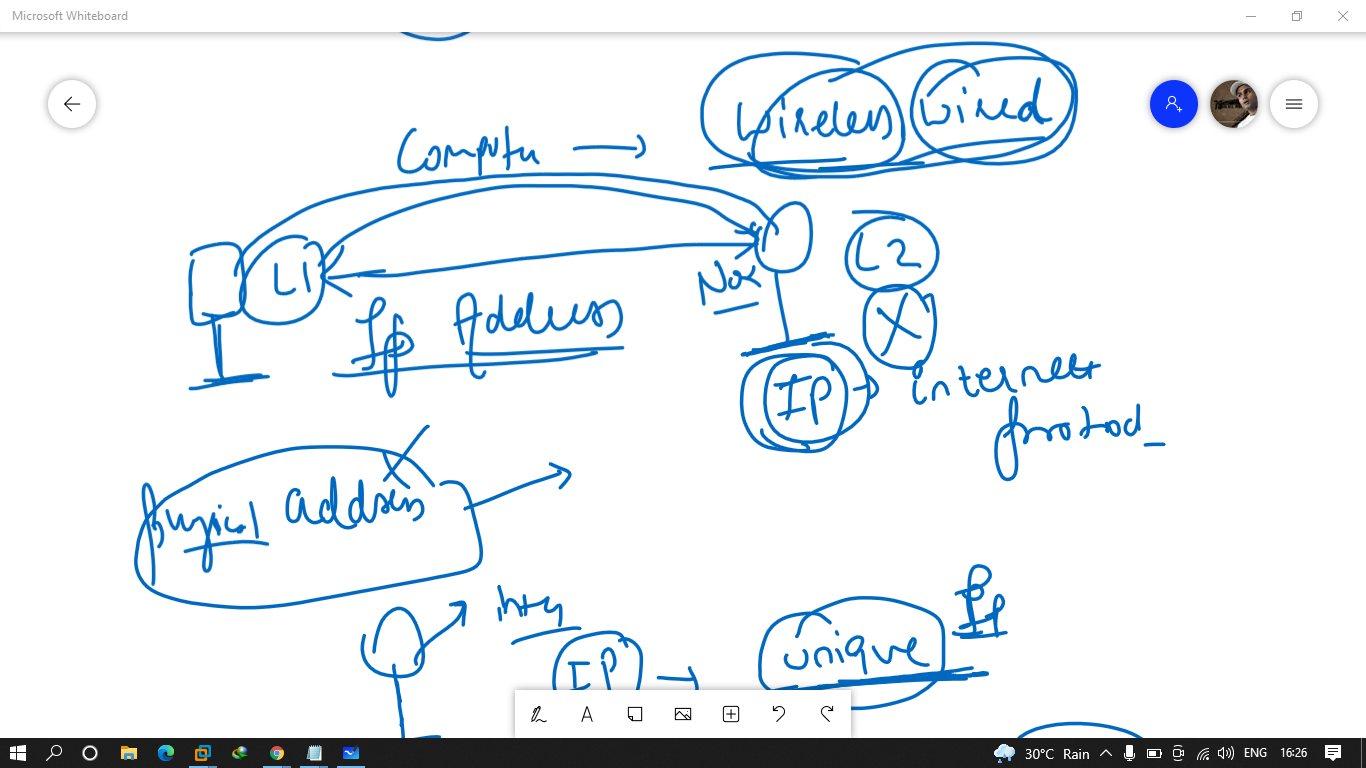 Microsoft Whiteboard
Wireless Wired
Computer
L1
L2
Ip Address
X
IP
internet
protocol
physical address
IP
unique
Ip
A
30°C Rain
ENG
16:26